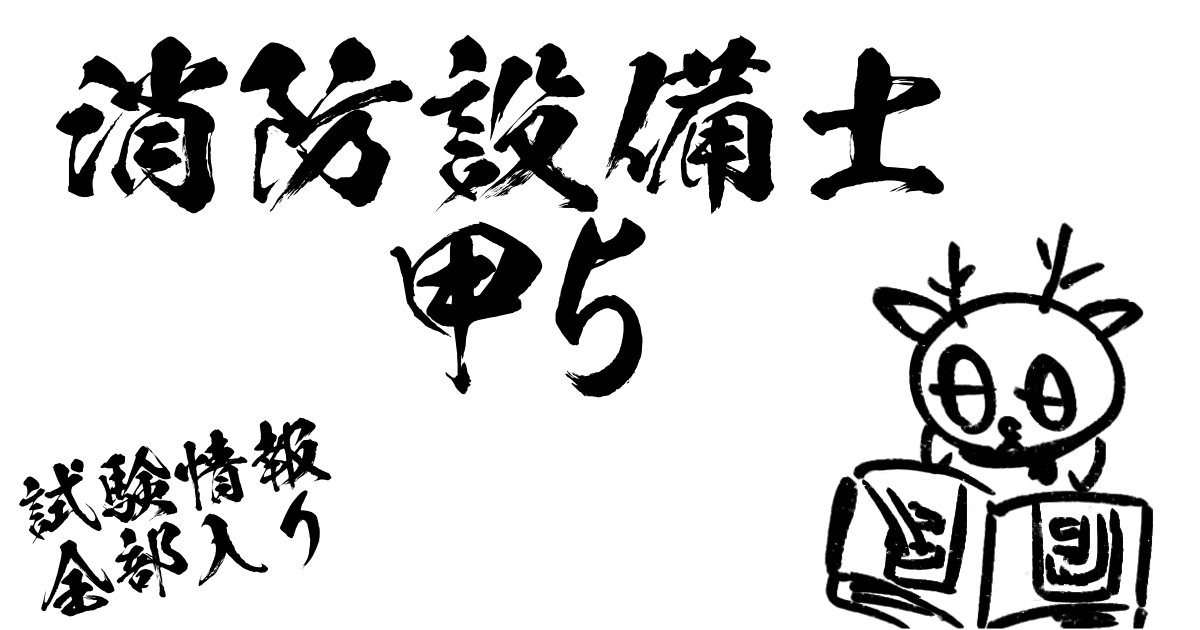 消防設備士
甲5
試験情報
全部入り